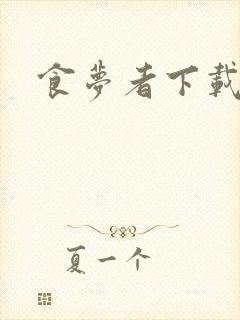 食夢者下載
夏一个